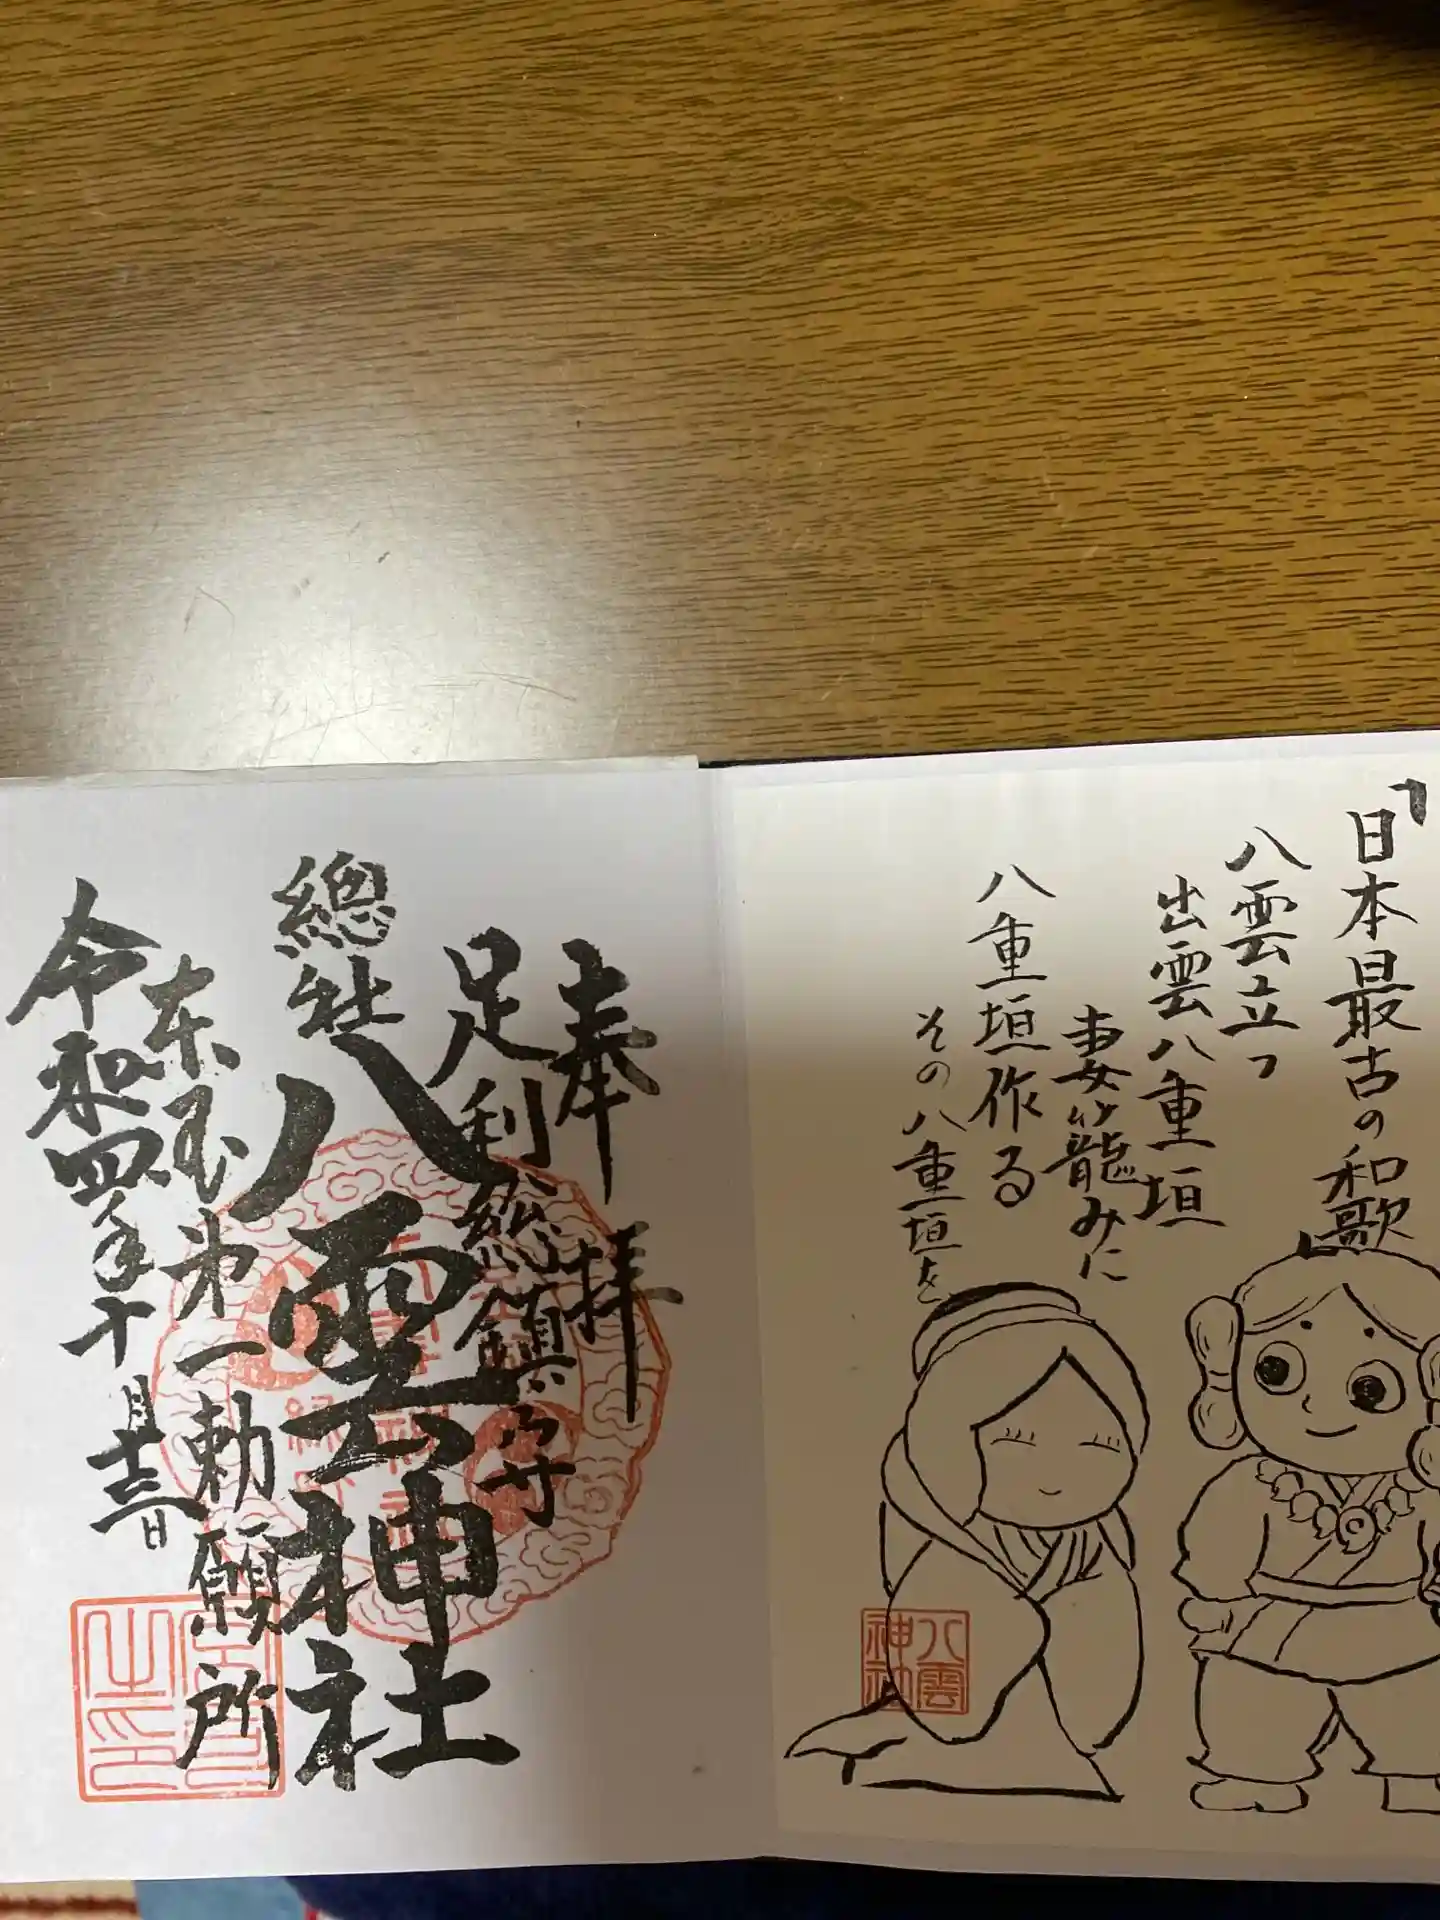 「日本最古の和歌」
八雲立つ
出雲八重垣
妻籠みに
八重垣作る
その八重垣を
八雲
神社
奉拝
足利総鎮守
總社
八雲神社
東國第一勅願所
令和四年十月十三日